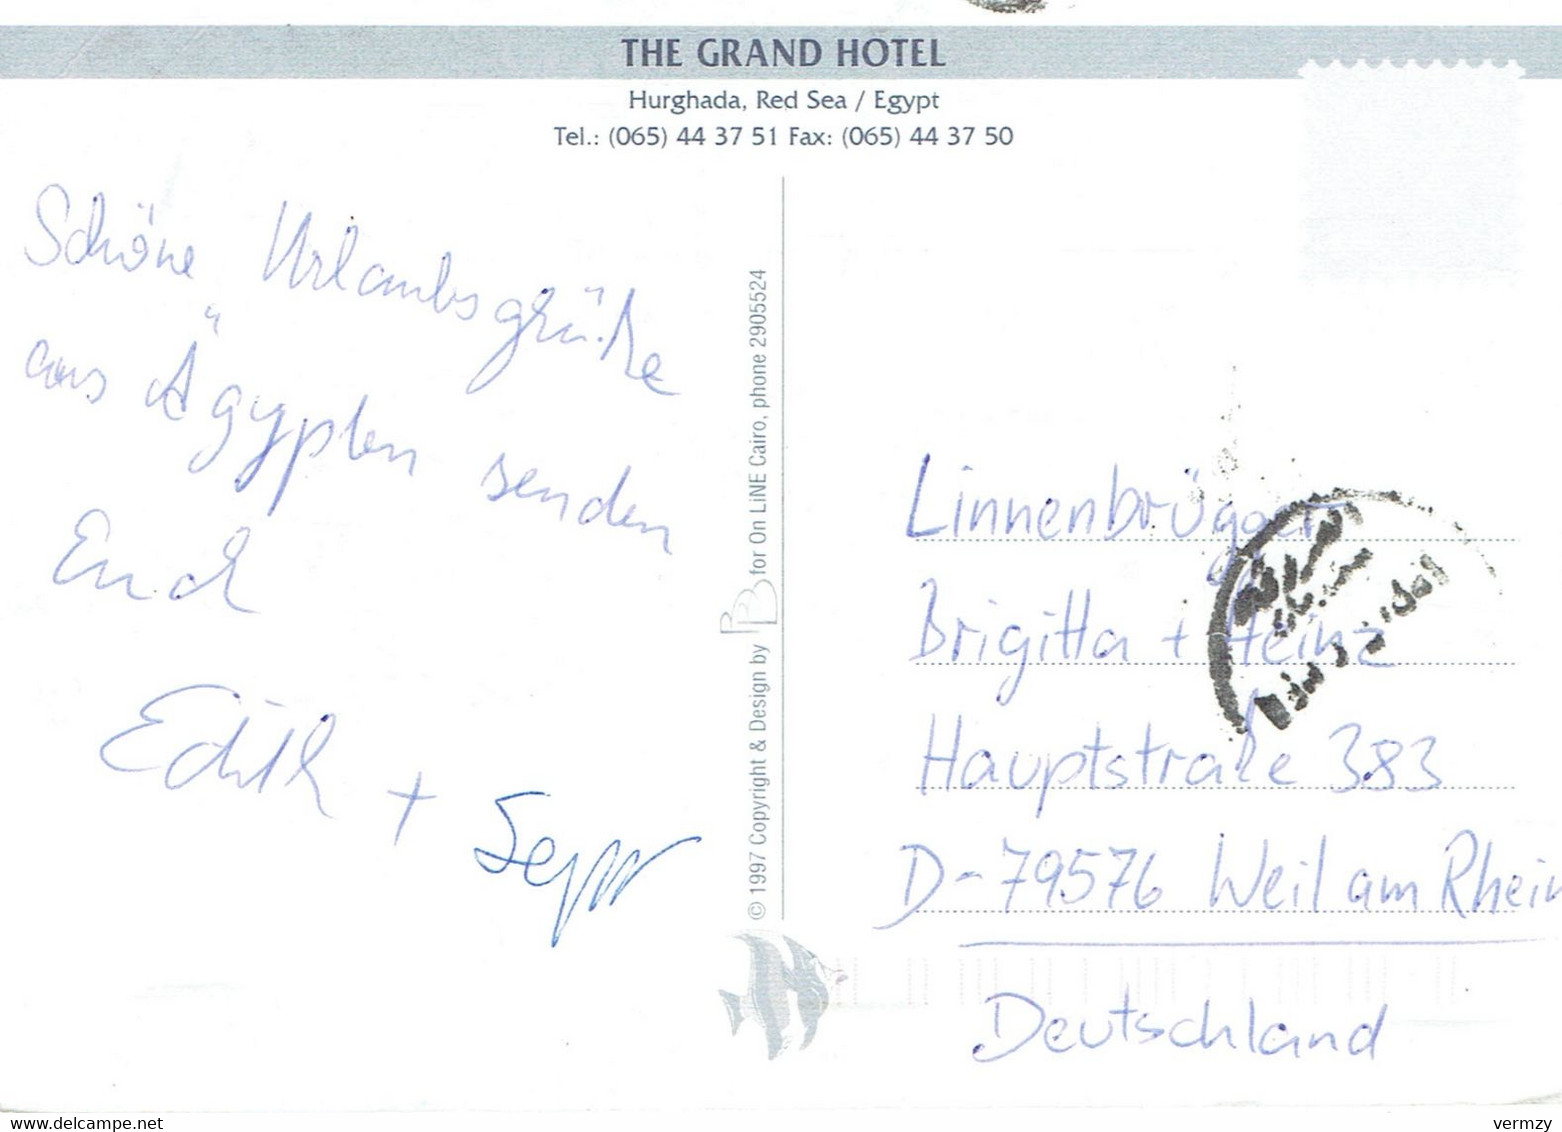 THE GRAND HOTEL
Hurghada, Red Sea / Egypt
Tel.: (065) 44 37 51 Fax: (065) 44 37 50
Schöne Urlaubsgrüße
aus Ägypten senden
Euch
Edith + Sepp
© 1997 Copyright & Design by BB for On LiNE Cairo, phone 2905524
Linnenbrügger
Brigitta + Heinz
Hauptstraße 383
D-79576 Weil am Rhein
Deutschland
www.delcampe.net
vermzy